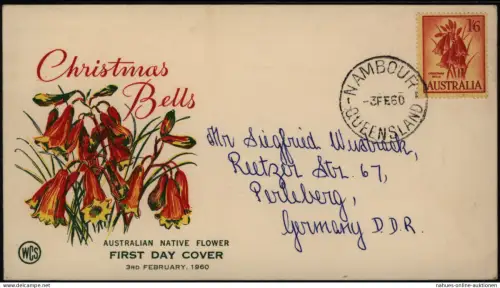 Christmas
Bells
1/6
CHRISTMAS
BELLS
AUSTRALIA
NAMBOUR
-3FE60
QUEENSLAND
Mr Siegfried Wustrack,
Reetzer Str. 67,
Perleberg,
Germany D.D.R.
AUSTRALIAN NATIVE FLOWER
FIRST DAY COVER
3RD FEBRUARY, 1960
WCS